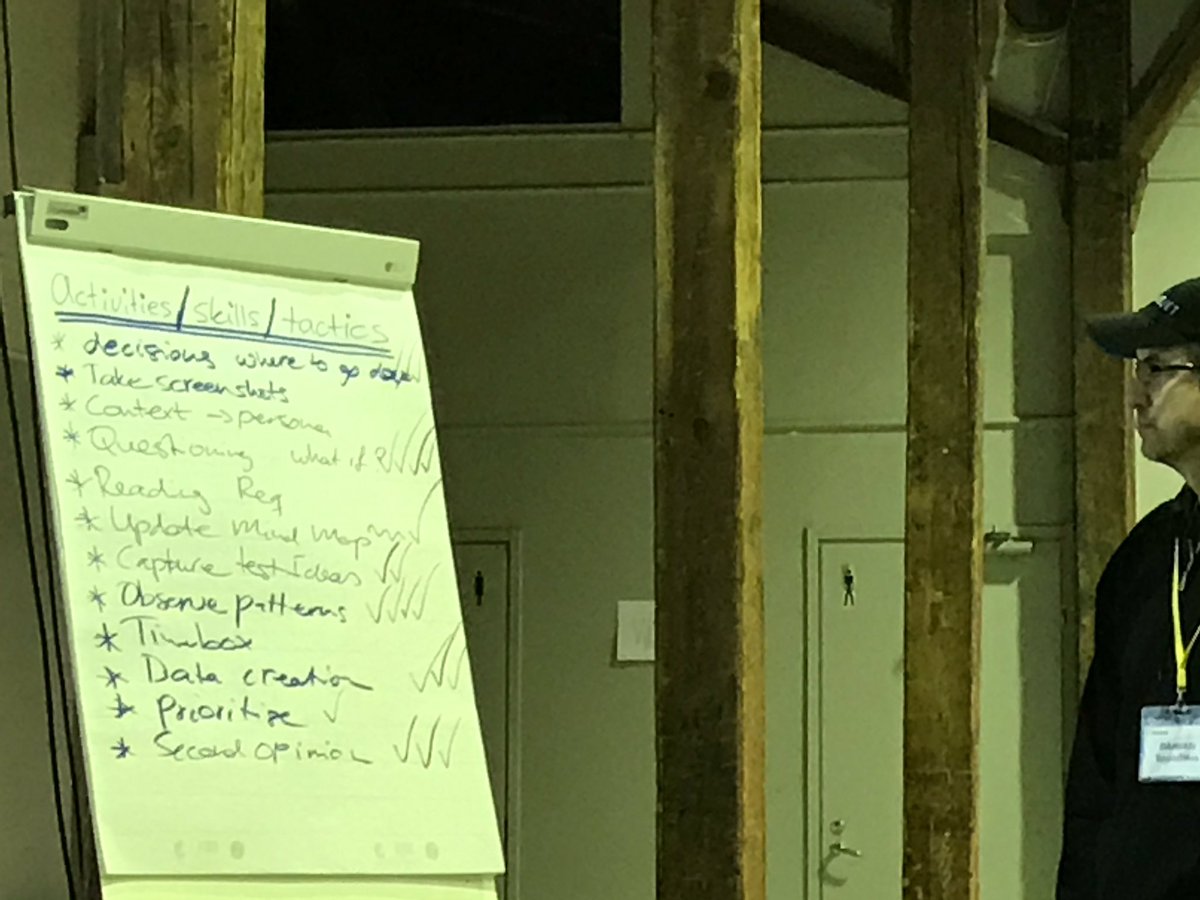 Activities/skills/tactics
* decisions where to go deeper
* Take screenshots
* Context → persona
* Questioning what if?
* Reading Req
* Update Mind Map
* Capture test Ideas
* Observe patterns
* Timebox
* Data creation
* Prioritize
* Second opinion